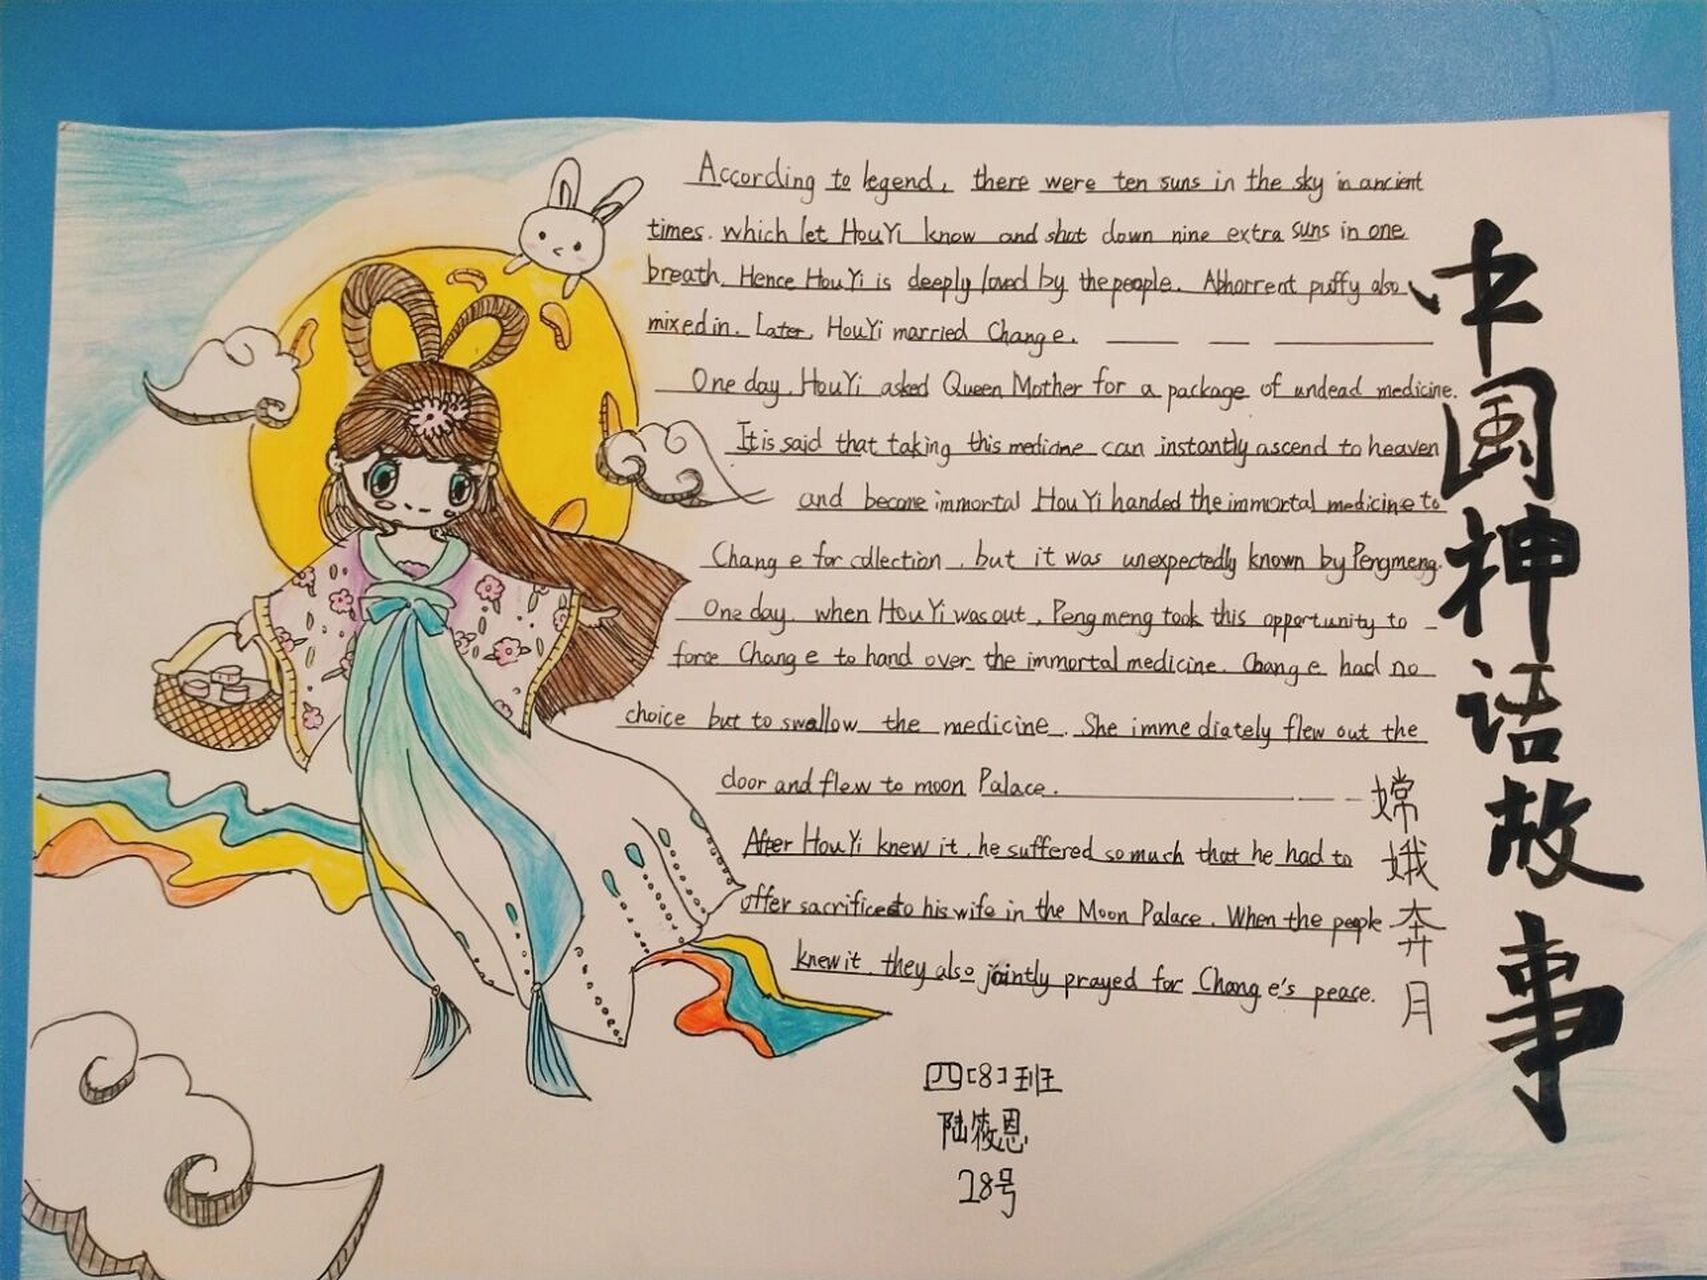 According to legend, there were ten suns in the sky in ancient
times. which let HouYi know and shot down nine extra suns in one
breath. Hence HouYi is deeply loved by the people. Abhorrent puffy also
mixed in. Later, HouYi married Chang e.
One day, HouYi asked Queen Mother for a package of undead medicine.
It is said that taking this medicine can instantly ascend to heaven
and become immortal HouYi handed the immortal medicine to
Chang e for collection, but it was unexpectedly known by Pengmeng.
One day, when HouYi was out, Pengmeng took this opportunity to
force Chang e to hand over the immortal medicine. Chang e had no
choice but to swallow the medicine. She immediately flew out the
door and flew to moon Palace.
After HouYi knew it, he suffered so much that he had to
offer sacrifices to his wife in the Moon Palace. When the people
knew it, they also jointly prayed for Chang e's peace.
中国神话故事
嫦娥奔月
四[8]班
陆筱恩
28号